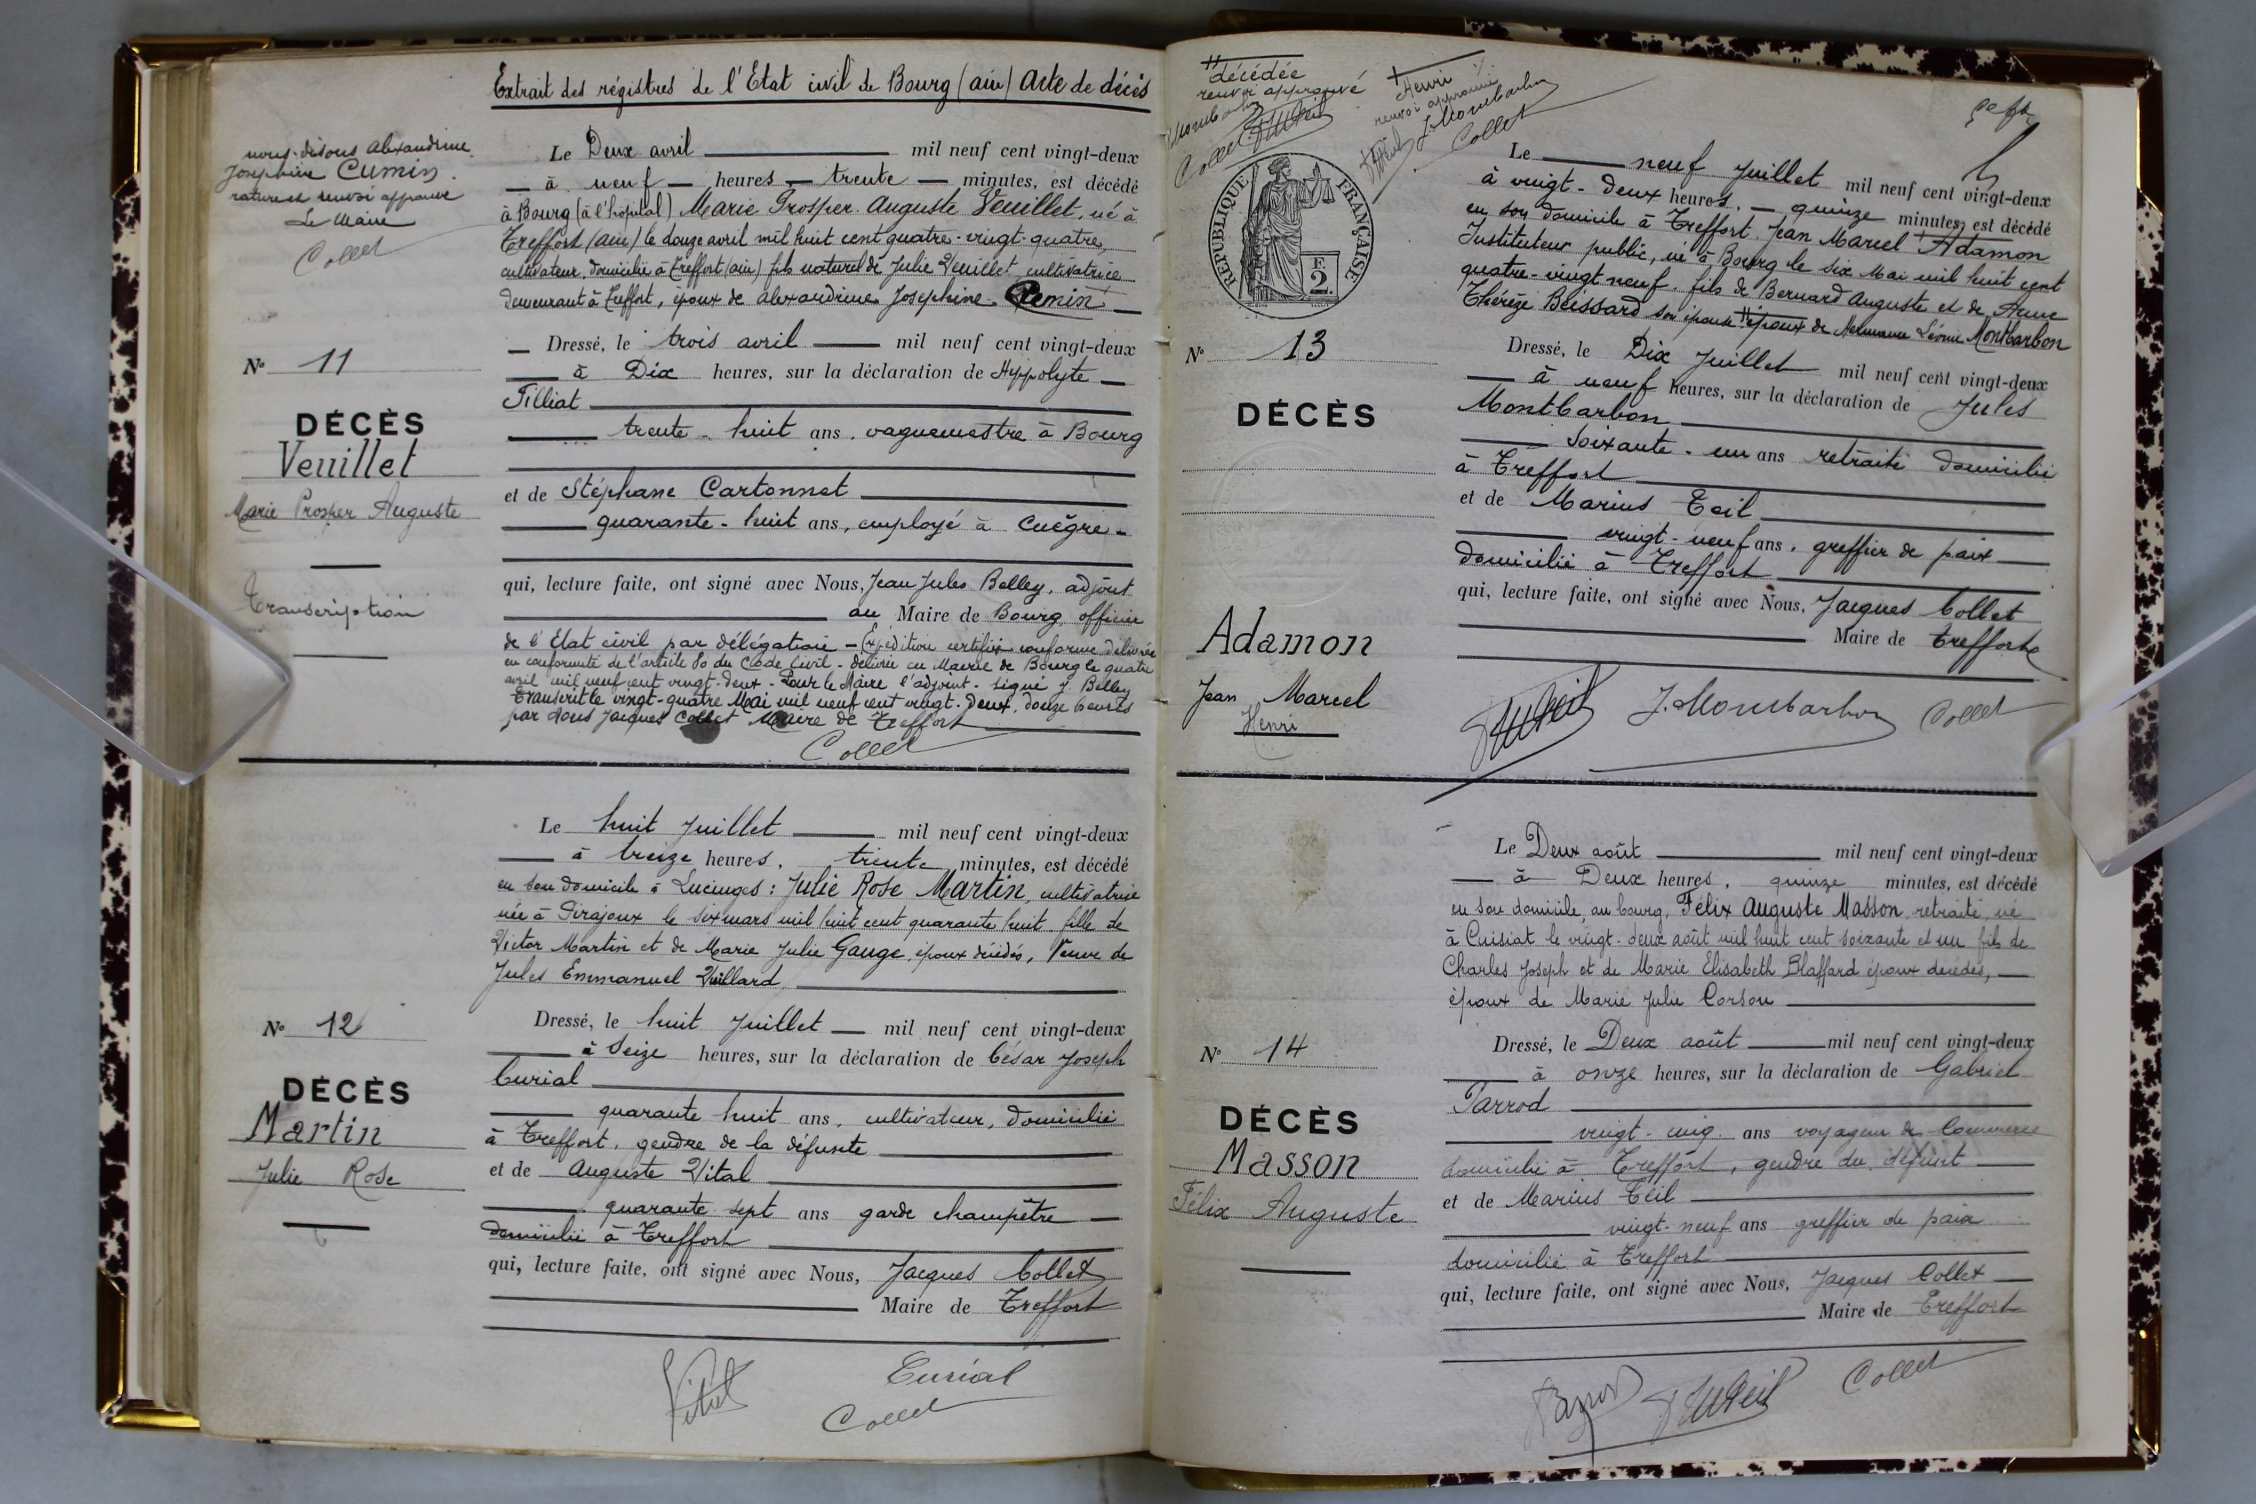 Extrait des régistres de l'Etat civil de Bourg (ain) Acte de décès
nous disons Alexandrine
Joséphine Cumin.
rature et renvoi approuvé
Le Maire
Collet
Le Deux avril mil neuf cent vingt-deux
à neuf heures trente minutes, est décédé
à Bourg (à l'hopital) Marie Prosper Auguste Veuillet, né à
Treffort (ain) le douze avril mil huit cent quatre-vingt-quatre,
cultivateur, domicilié à Treffort (ain) fils naturel de Julie Veuillet cultivatrice
demeurant à Treffort, époux de Alexandrine Josephine
Dressé, le trois avril mil neuf cent vingt-deux
à Dix heures, sur la déclaration de Hippolyte
Tilliat
trente-huit ans, vaguemestre à Bourg
et de Stéphane Cartonnet
quarante-huit ans, employé à Cuègre
qui, lecture faite, ont signé avec Nous, Jean Jules Belley, adjoint
au Maire de Bourg officier
de l'Etat civil par délégation - Expédition certifiée conforme délivrée
en conformité de l'article 80 du Code Civil - délivrée en Mairie de Bourg le quatre
avril mil neuf cent vingt-deux - Pour le Maire l'adjoint - signé J. Belley
Transcrit le vingt-quatre Mai mil neuf cent vingt-deux, douze heures
par Nous Jacques Collet Maire de Treffort
Collet
N° 11
DÉCÈS
Veuillet
Marie Prosper Auguste
Transcription
Le huit Juillet mil neuf cent vingt-deux
à treize heures, trente minutes, est décédé
en son domicile à Lucinges: Julie Rose Martin, cultivatrice
née à Pirajoux le six mars mil huit cent quarante huit fille de
Victor Martin et de Marie Julie Gauge, époux décédés, Veuve de
Jules Emmanuel Vuillard
N° 12
DÉCÈS
Martin
Julie Rose
Dressé, le huit Juillet mil neuf cent vingt-deux
à Seize heures, sur la déclaration de César Joseph
Curial
quarante huit ans, cultivateur, domicilié
à Treffort, gendre de la défunte
et de Auguste Vital
quarante sept ans garde champêtre
domicilié à Treffort
qui, lecture faite, ont signé avec Nous, Jacques Collet
Maire de Treffort
Vital
Curial
Collet
décédée
renvoi approuvé
Collet
Henri
renvoi approuvé
J. Montbarbon
Collet
RÉPUBLIQUE FRANÇAISE
F.
2.
Le neuf Juillet mil neuf cent vingt-deux
à vingt-deux heures, quinze minutes, est décédé
en son domicile à Treffort Jean Marcel Adamon
Instituteur public, né à Bourg le six Mai mil huit cent
quatre-vingt neuf, fils de Bernard Auguste et de Anne
Thérèze Buissard son épouse époux de Léonie Montbarbon
N° 13
DÉCÈS
Adamon
Jean Marcel
Henri
Dressé, le Dix Juillet mil neuf cent vingt-deux
à neuf heures, sur la déclaration de Jules
Montbarbon
soixante-un ans retraité domicilié
à Treffort
et de Marius Teil
vingt-neuf ans, greffier de paix
domicilié à Treffort
qui, lecture faite, ont signé avec Nous, Jacques Collet
Maire de Treffort
J. Montbarbon
Collet
Le Deux août mil neuf cent vingt-deux
à Deux heures, quinze minutes, est décédé
en son domicile, au bourg, Félix Auguste Masson retraité, né
à Cuisiat le vingt-deux août mil huit cent soixante et un fils de
Charles Joseph et de Marie Elisabeth Blaffard époux décédés,
époux de Marie Julie Corson
N° 14
DÉCÈS
Masson
Félix Auguste
Dressé, le Deux août mil neuf cent vingt-deux
à onze heures, sur la déclaration de Gabriel
Parrod
vingt-cinq ans voyageur de Commerce
domicilié à Treffort, gendre du défunt
et de Marius Teil
vingt-neuf ans greffier de paix
domicilié à Treffort
qui, lecture faite, ont signé avec Nous, Jacques Collet
Maire de Treffort
Collet